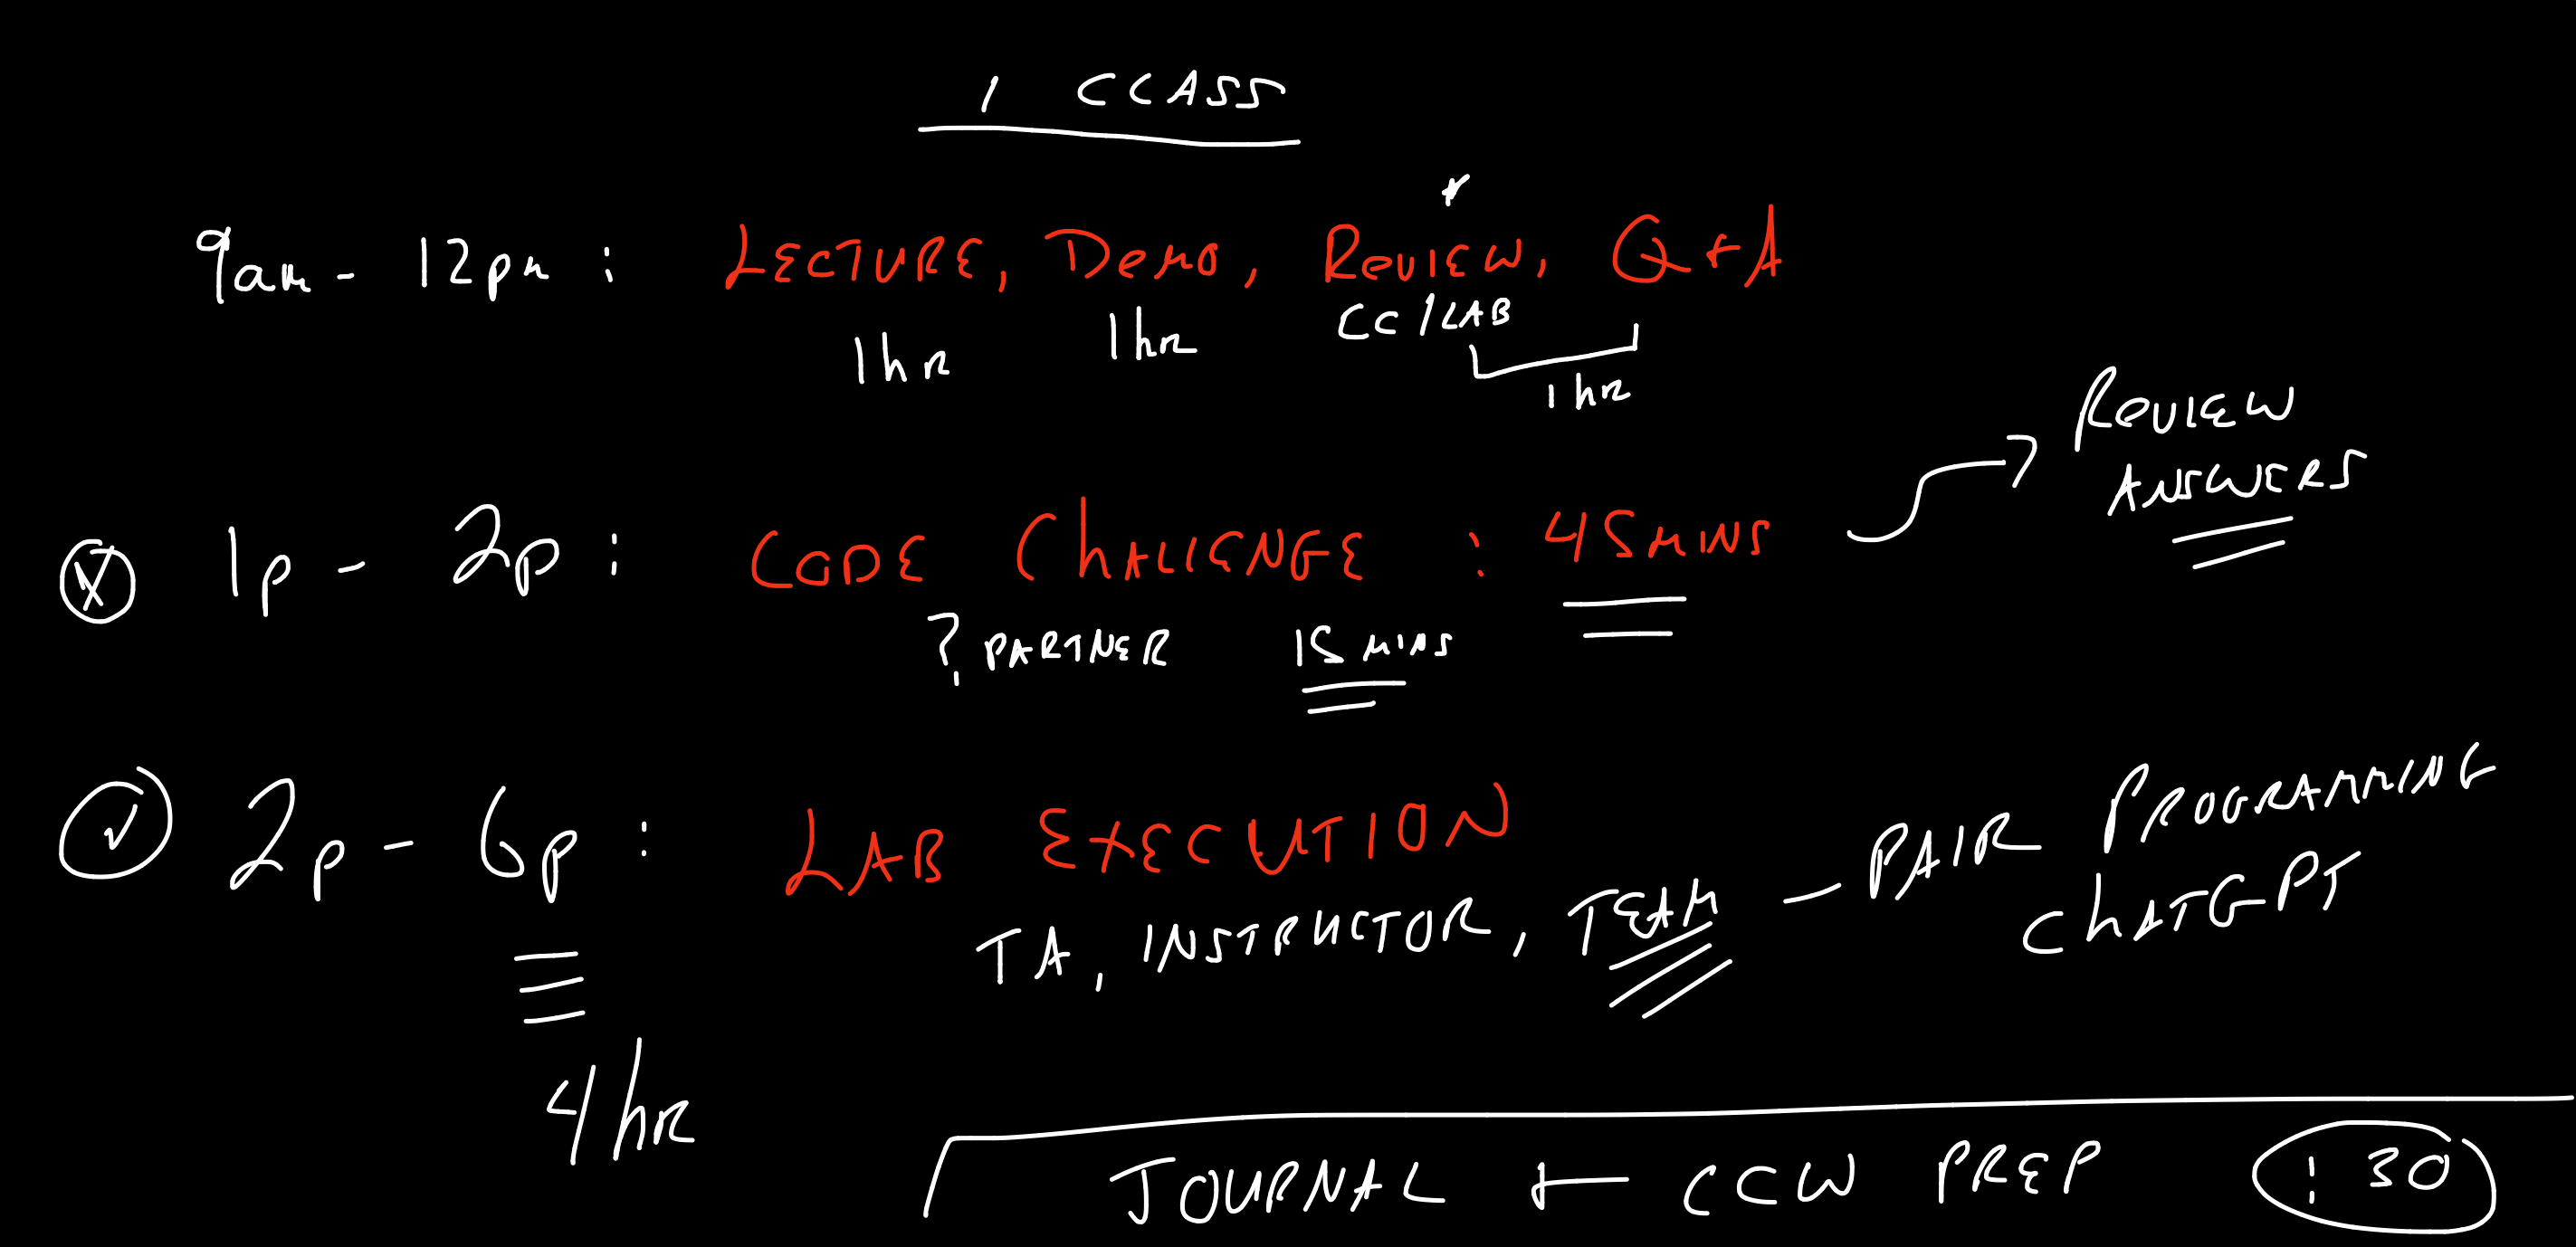 1 CLASS
9am - 12pm : LECTURE, DEMO, REVIEW, Q + A
1hr 1hr CC/LAB
1hr
REVIEW
ANSWERS
1p - 2p : CODE CHALLENGE : 45 MINS
? PARTNER 15 MINS
2p - 6p : LAB EXECUTION
TA, INSTRUCTOR, TEAM - PAIR PROGRAMMING
CHATGPT
4hr
JOURNAL + CCW PREP :30